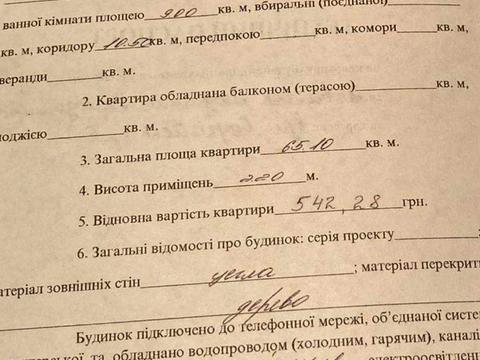 ванної кімнати площею 900 кв. м, вбиральні (поєднаної)
кв. м, коридору 10.50 кв. м, передпокою кв. м, комори кв. м,
веранди кв. м.
2. Квартира обладнана балконом (терасою) кв. м,
лоджією кв. м.
3. Загальна площа квартири 65.10 кв. м.
4. Висота приміщень 220 м.
5. Відновна вартість квартири 542,28 грн.
6. Загальні відомості про будинок: серія проекту ;
матеріал зовнішніх стін цегла ; матеріал перекрит
дерево
Будинок підключено до телефонної мережі, об'єднаної систе
та обладнано водопроводом (холодним, гарячим), каналі
електроосвітлен